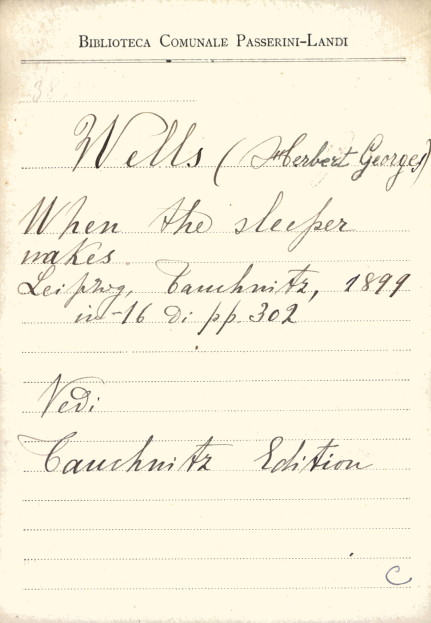 BIBLIOTECA COMUNALE PASSERINI-LANDI
38
Wells (Herbert Georges)
When the sleeper
wakes.
Leipzig, Tauchnitz, 1899
in-16 di pp. 302
Vedi
Tauchnitz Edition
C